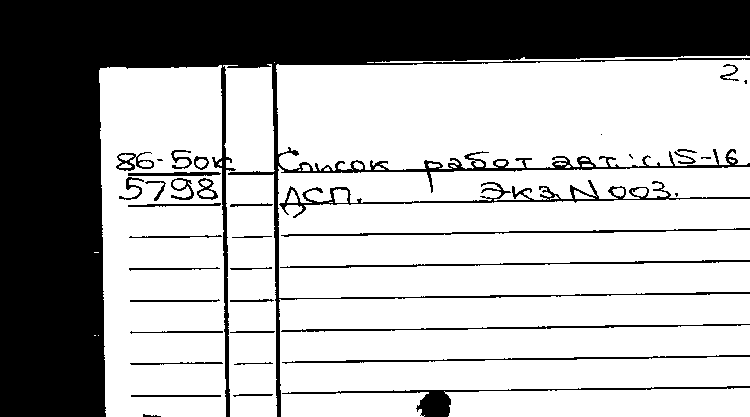 2.
86-50к Список работ авт.: с. 15-16
5798 ДСП. Экз. N 003.